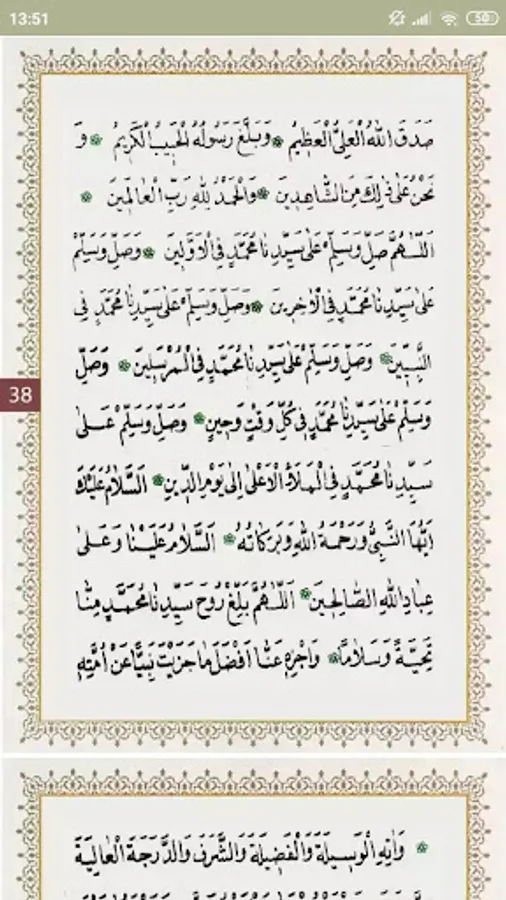 13:51
50
صَدَقَ اللهُ الْعَلِيُّ الْعَظِيمُ وَبَلَّغَ رَسُولُهُ الْحَبِيبُ الْكَرِيمُ وَ
نَحْنُ عَلَى ذٰلِكَ مِنَ الشَّاهِدِينَ وَالْحَمْدُ لِلّٰهِ رَبِّ الْعَالَمِينَ
اَللّٰهُمَّ صَلِّ وَسَلِّمْ عَلَى سَيِّدِنَا مُحَمَّدٍ فِي الْاَوَّلِينَ وَصَلِّ وَسَلِّمْ
عَلَى سَيِّدِنَا مُحَمَّدٍ فِي الْاٰخِرِينَ وَصَلِّ وَسَلِّمْ عَلَى سَيِّدِنَا مُحَمَّدٍ فِي
النَّبِيِّينَ وَصَلِّ وَسَلِّمْ عَلَى سَيِّدِنَا مُحَمَّدٍ فِي الْمُرْسَلِينَ وَصَلِّ
وَسَلِّمْ عَلَى سَيِّدِنَا مُحَمَّدٍ فِي كُلِّ وَقْتٍ وَحِينٍ وَصَلِّ وَسَلِّمْ عَلَى
38
سَيِّدِنَا مُحَمَّدٍ فِي الْمَلَأِ الْاَعْلَى اِلَى يَوْمِ الدِّينِ اَلسَّلَامُ عَلَيْكَ
اَيُّهَا النَّبِيُّ وَرَحْمَةُ اللهِ وَبَرَكَاتُهُ اَلسَّلَامُ عَلَيْنَا وَعَلَى
عِبَادِ اللهِ الصَّالِحِينَ اَللّٰهُمَّ بَلِّغْ رُوحَ سَيِّدِنَا مُحَمَّدٍ مِنَّا
تَحِيَّةً وَسَلَامًا وَاجْزِهِ عَنَّا اَفْضَلَ مَا جَزَيْتَ نَبِيًّا عَنْ اُمَّتِهِ
وَاٰتِهِ الْوَسِيلَةَ وَالْفَضِيلَةَ وَالشَّرَفَ وَالدَّرَجَةَ الْعَالِيَةَ